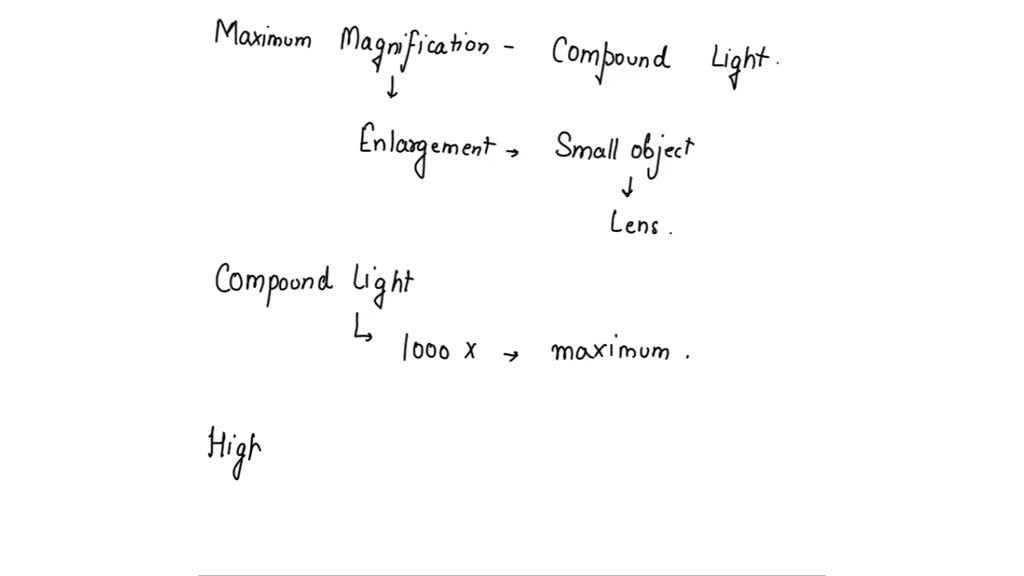 Maximum Magnification - Compound Light.
↓
Enlargement → Small object
↓
Lens.
Compound Light
↳ 1000 x → maximum.
High